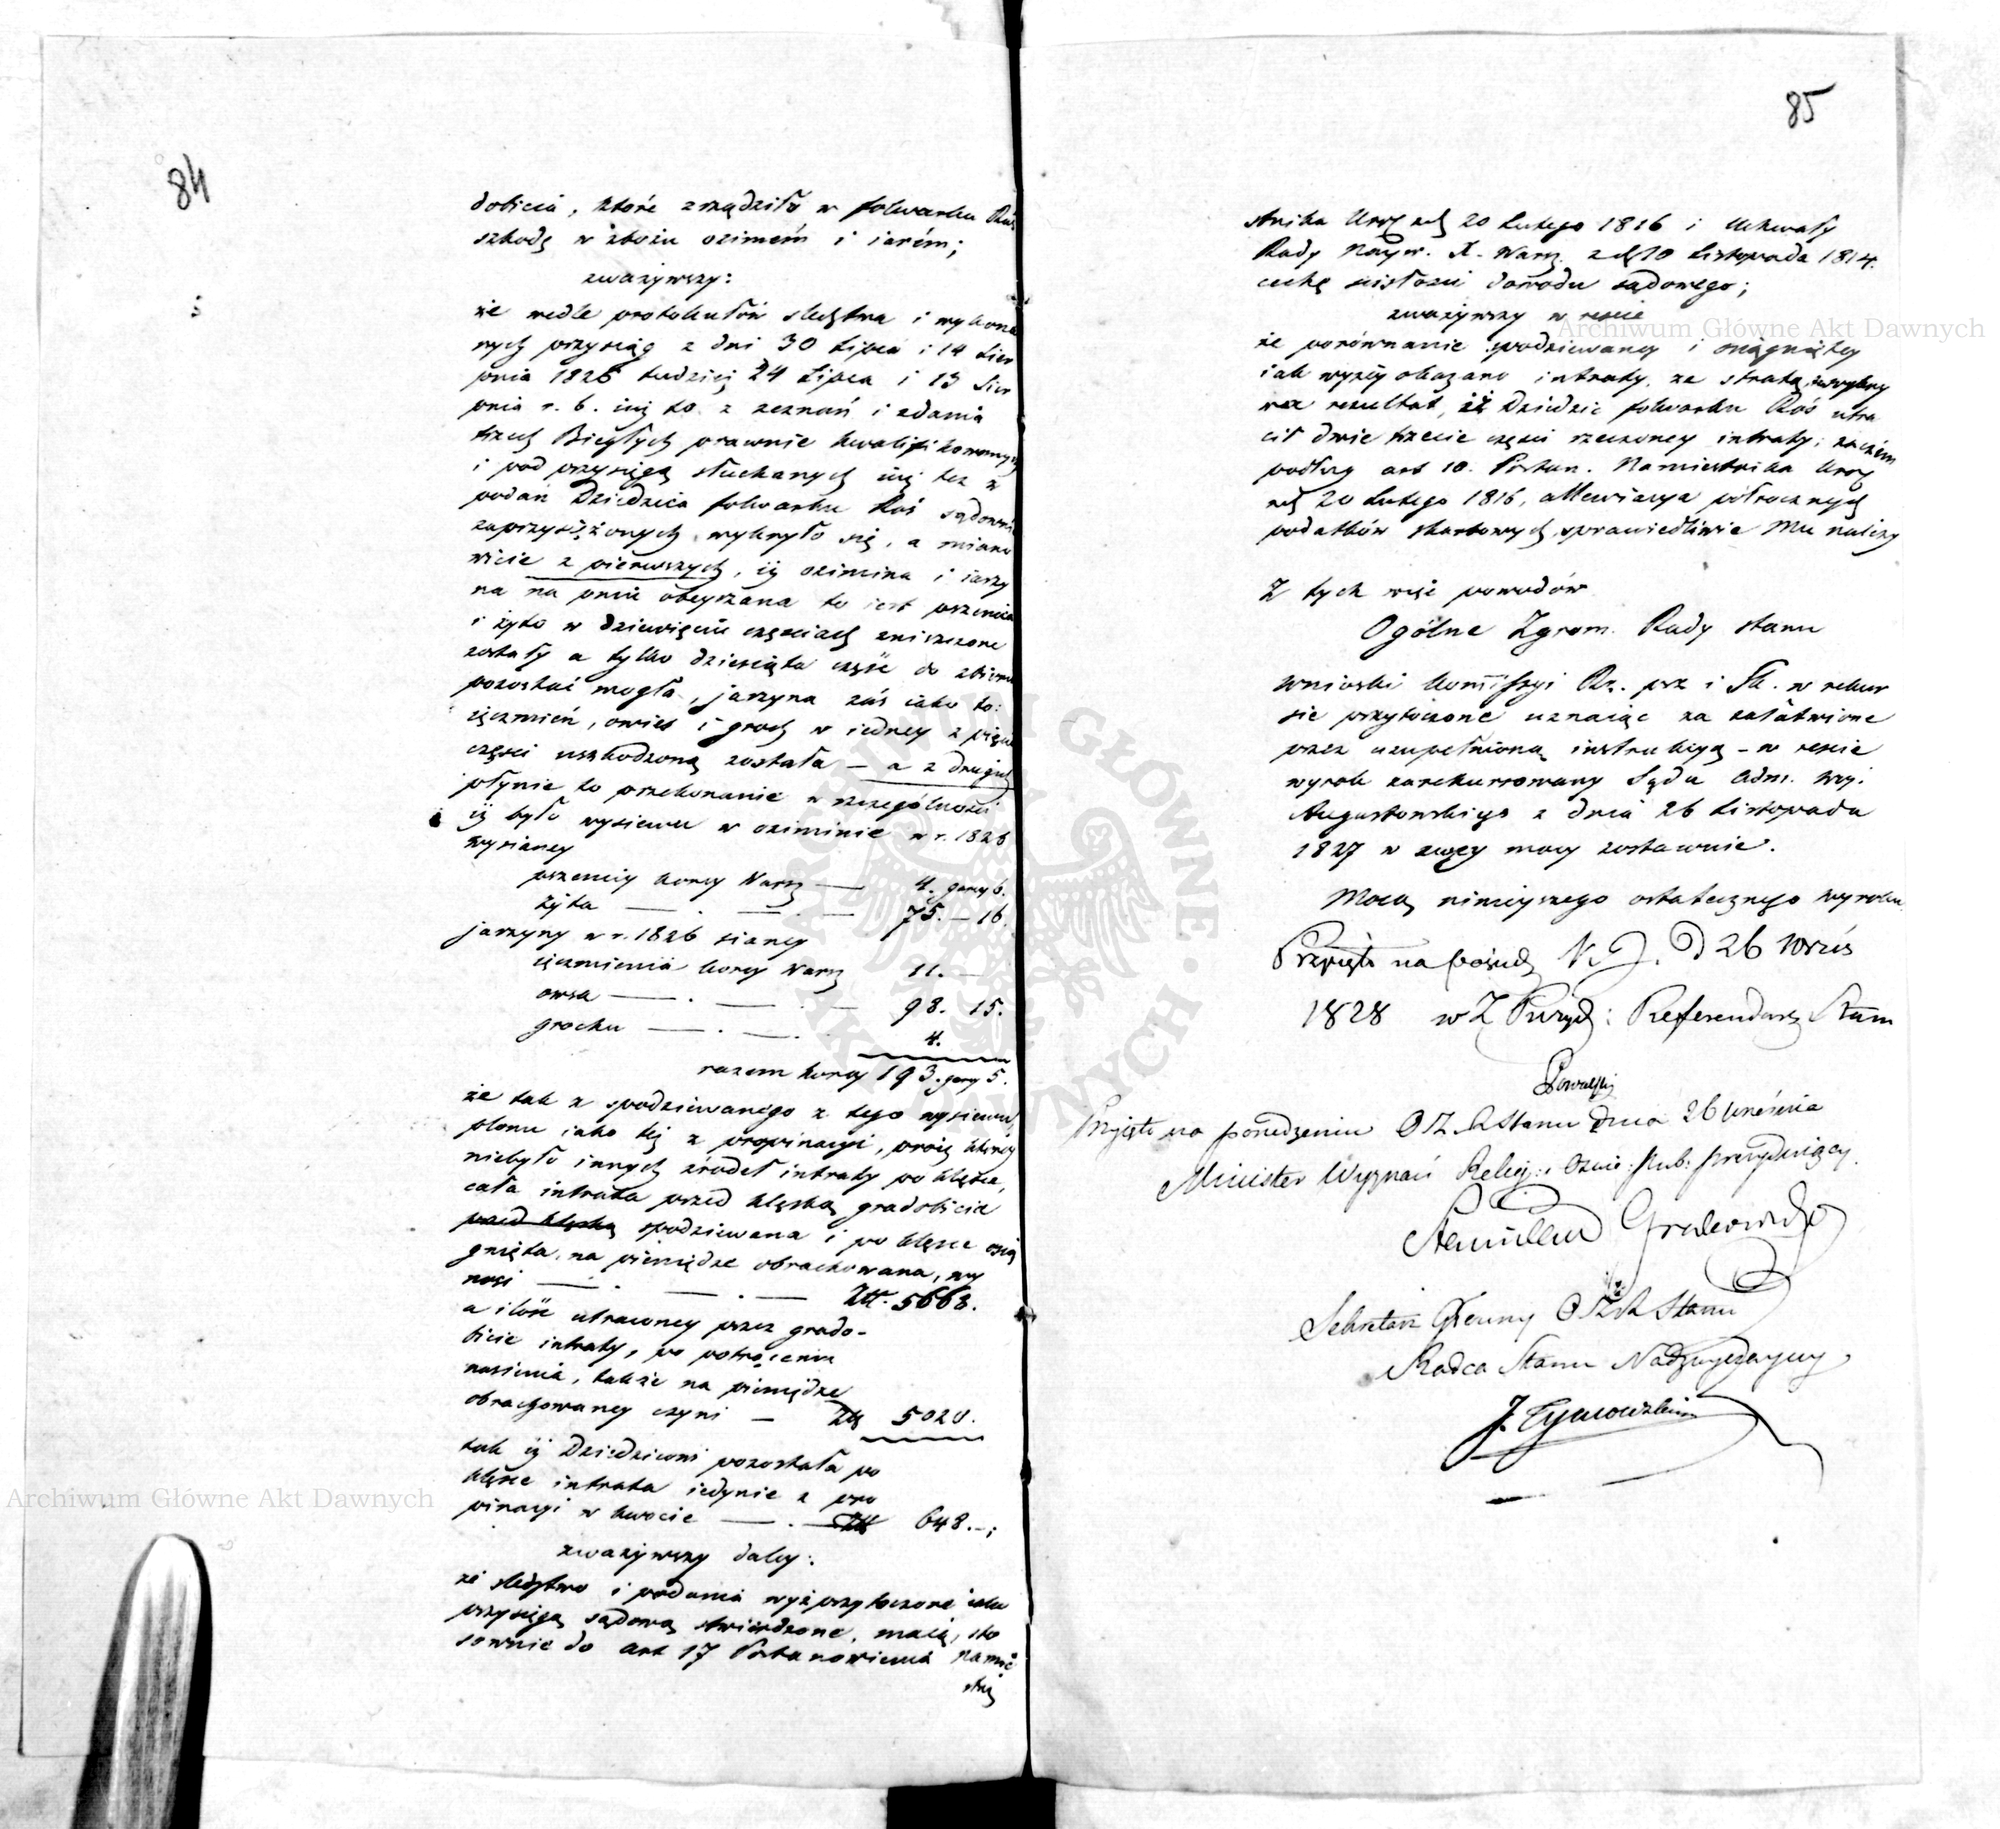 84
dobicia, które zrządziło w folwarku Roś
szkodę w zbożu ozimém i iarém;
zważywszy:
że wedle protokułów śledztwa i wykona
nych przysiąg z dni 30 Lipca i 14 Sier
pnia 1826 tudzież 24 Lipca i 13 Sier
pnia r. b. iuż to z zeznań i zdania
trzech Biegłych prawnie kwalifikowanych
i pod przysięgą słuchanych iuż też z
podań Dziedzica folwarku Roś sądownie
zaprzysiężonych wykryło się, a miano
wicie z pierwszych, iż ozimina i iarzy
na na pniu obeyrzana to iest pszenica
i żyto w dziewięciu częściach zniszczone
zostały a tylko dziesiąta część do zbioru
pozostać mogła, jarzyna zaś iako to:
ięczmień, owies i groch w iedney z pięciu
części uszkodzoną została – a z drugich
płynie to przekonanie w szczególności
iż było wysiewu w oziminie w r. 1826
wysianey
pszenicy korcy Warsz — 4. garcy 6.
żyta — . — . — 75. — 16.
jarzyny w r. 1826 sianey
ięczmienia korcy Warsz 11. —
owsa — . — . — 98. 15.
grochu — . — . 4.
razem korcy 193. garcy 5.
że tak z spodziewanego z tego wysiewu
plonu iako też z propinacyi, prócz których
niebyło innych źródeł intraty po klęsce,
cała intrata przed klęską gradobicia
przed klęską spodziewana i po klęsce osią
gnięta, na pieniądze obrachowana, wy
nosi — . — . — Złł. 5668.
a ilość utraconey przez grado-
bicie intraty, po potrąceniu
nasienia, także na pieniądze
obrachowaney czyni — Złł 5020.
tak iż Dziedzicowi pozostała po
klęsce intrata iedynie z pro
pinacyi w kwocie — . — Złł 648.–;
zważywszy daley:
że śledztwo i podania wyż przytoczone iako
przysięgą sądową stwierdzone, maią, sto
sownie do art 17 Postanowienia Namie
stni
85
stnika Król z d. 20 Lutego 1816 i Uchwały
Rady Naywr. X. Warsz. z d. 10 Listopada 1814.
cechę istności dowodu sądowego;
zważywszy w reście
że porównanie spodziewaney i osiągniętey
iak wyżey okazano intraty, ze stratą
rezultat, iż Dziedzic folwarku Roś utra
cił dwie trzecie części rzeczoney intraty; zaczém
podług art 10. Postan. Namiestnika Król
z d. 20 Lutego 1816, allewiacya półrocznych
podatków skarbowych sprawiedliwie Mu należy
Z tych więc powodów
Ogólne Zgrom. Rady stanu
Wnioski Kommissyi Rz. prz i Sk. w rekur
sie przytoczone uznaiąc za załatwione
przez uzupełnioną instrukcyą – w reście
wyrok zarekursowany Sądu Adm. Woj.
Augustowskiego z dnia 26 Listopada
1827 w swey mocy zostawuie.
Mocą ninieyszego ostatecznego wyroku.
Przyięto na posied. d 26 Wrześ
1828 w Z Przyd: Referendarz Stanu
Przyięto na posiedzeniu O Z R Stanu dnia 26 Września
Minister Wyznań Relig: i Oświe: Pub: prezyduiący.
Stanisław Grabowski
Sekretarz Główny O Z R Stanu
Radca Stanu Nadzwyczayny
J. Tymowski
Archiwum Główne Akt Dawnych
Archiwum Główne Akt Dawnych
ARCHIWUM GŁÓWNE AKT DAWNYCH